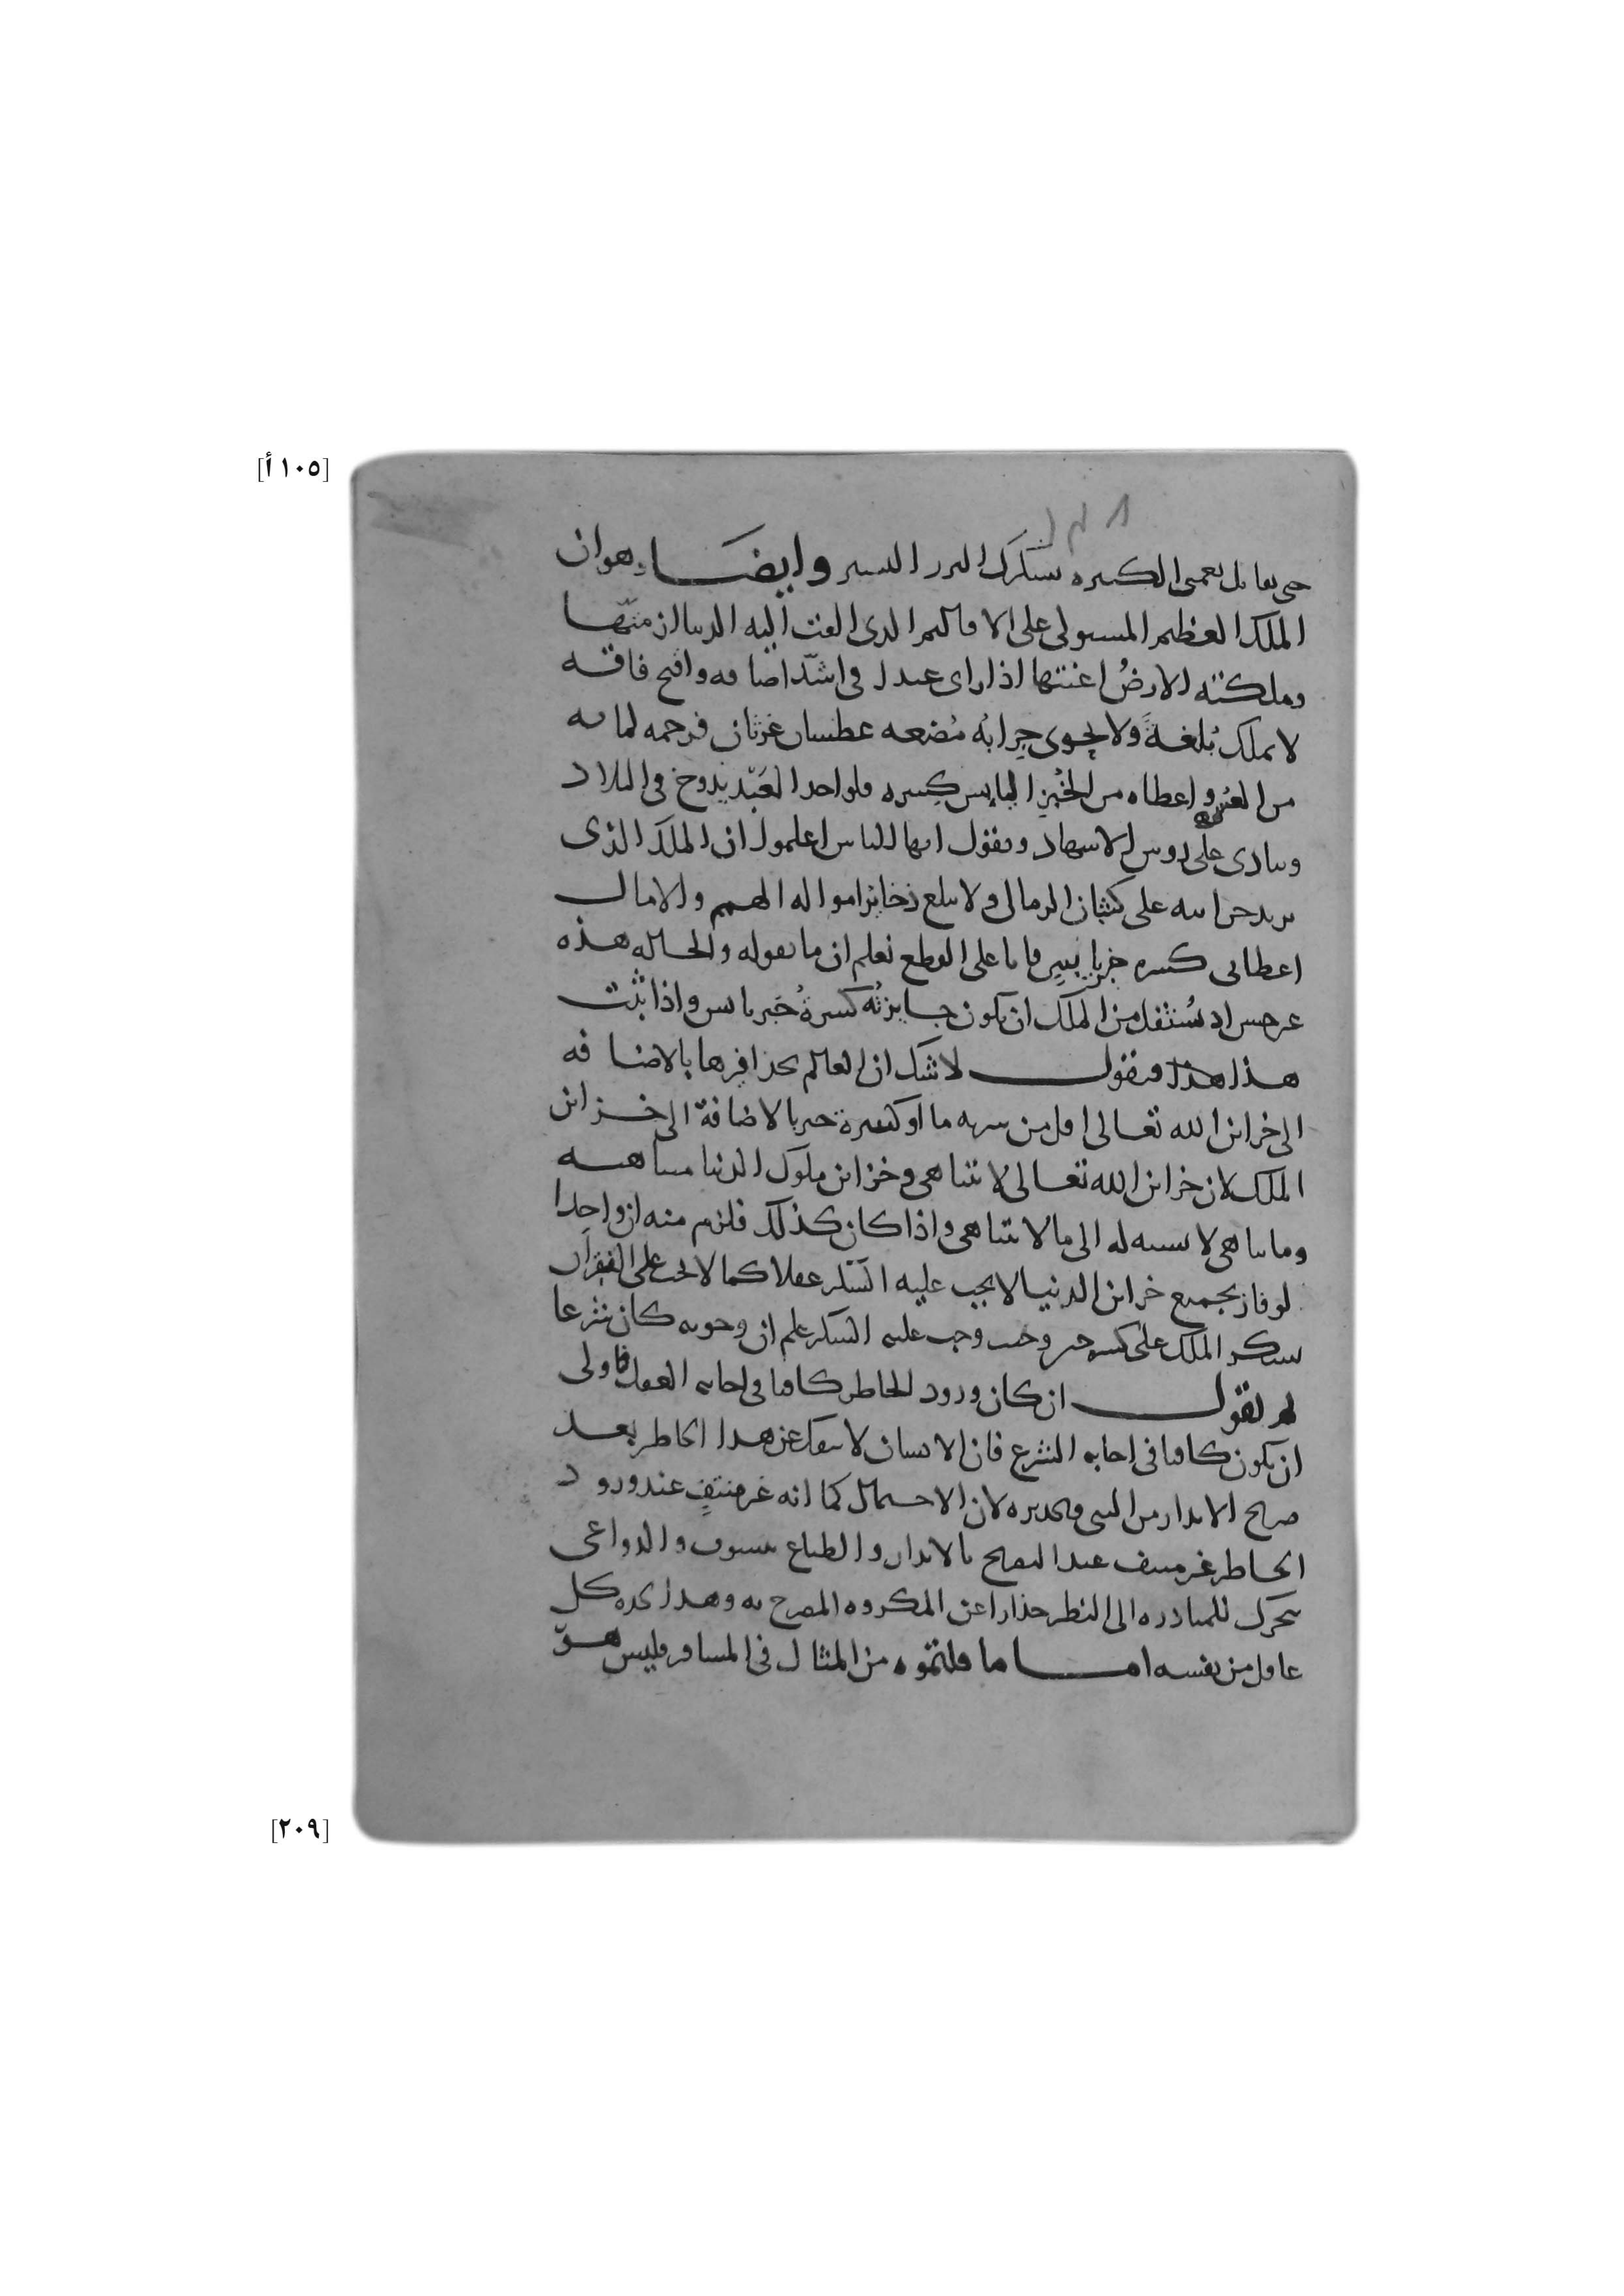 [١٠٥ أ]
حتى يقابل نعمى الكثيره بشكرك النزر اليسير وايضا وهو ان
الملك العظيم المستولى على الاقاليم الذى القت اليه الدنيا ازمتها
وملكته الارض اعنتها اذا راى عبدا فى اشد اضاقه واقبح فاقه
لا يملك بُلغةً ولا يحوى جرابُه مُضغه عطشان غرثان فرحمه لما به
من الضر واعطاه من الخُبز اليابس كِسره فلو اخد العَبْد يدوخ فى البلاد
وينادى على روس الاشهاد ويقول ايها الناس اعلموا ان الملك الذى
يزيد خزاينه على كثبان الرمال ولا يبلغ ذخايز امواله الهمم والامال
اعطانى كسره خبز يابس فانا على القطع نعلم ان ما يقوله والحاله هذه
غير حسن اذ يُستقل من الملك ان يكون جايزتُه كسرةُ خبز يابس واذا ثبت
هذا هذا فنقول لا شك ان العالم بحذافيرها بالاضافه
الى خزاين الله تعالى اقل من شربه ما او كسرة خبز بالاضافة الى خزاين
الملك لان خزاين الله تعالى لا تتناهى وخزاين ملوك الدنيا متناهيه
وما يتناهى لا نسبه له الى ما لا يتناهى واذا كان كذلك فلزم منه ان واحِدا
لو فاز بجميع خزاين الدنيا لا يجب عليه الشكر عقلا كما لا يجب على الفقير ان
يشكر الملك على كسره خبز وحيث وجب عليه الشكر علم ان وجوبه كان شرعا
ثم نقول ان كان ورود الخاطر كافيا فى ايجابه العقل فاولى
ان يكون كافيا فى ايجابه الشرع فان الانسان لا ينفك عن هذا الخاطر بعد
صريح الانذار من النبى وتحذيره لان الاحتمال كما انه غير منتفٍ عند ورود
الخاطر غير منتف عند التصريح بالانذار والطباع تتشوف والدواعى
تتحرك للمبادره الى النظر حذارا عن المكروه المصرح به وهذا يجده كل
عاقل من نفسه اما ما قلتموه من المثال فى المسافر فليس هو
[٢٠٩]